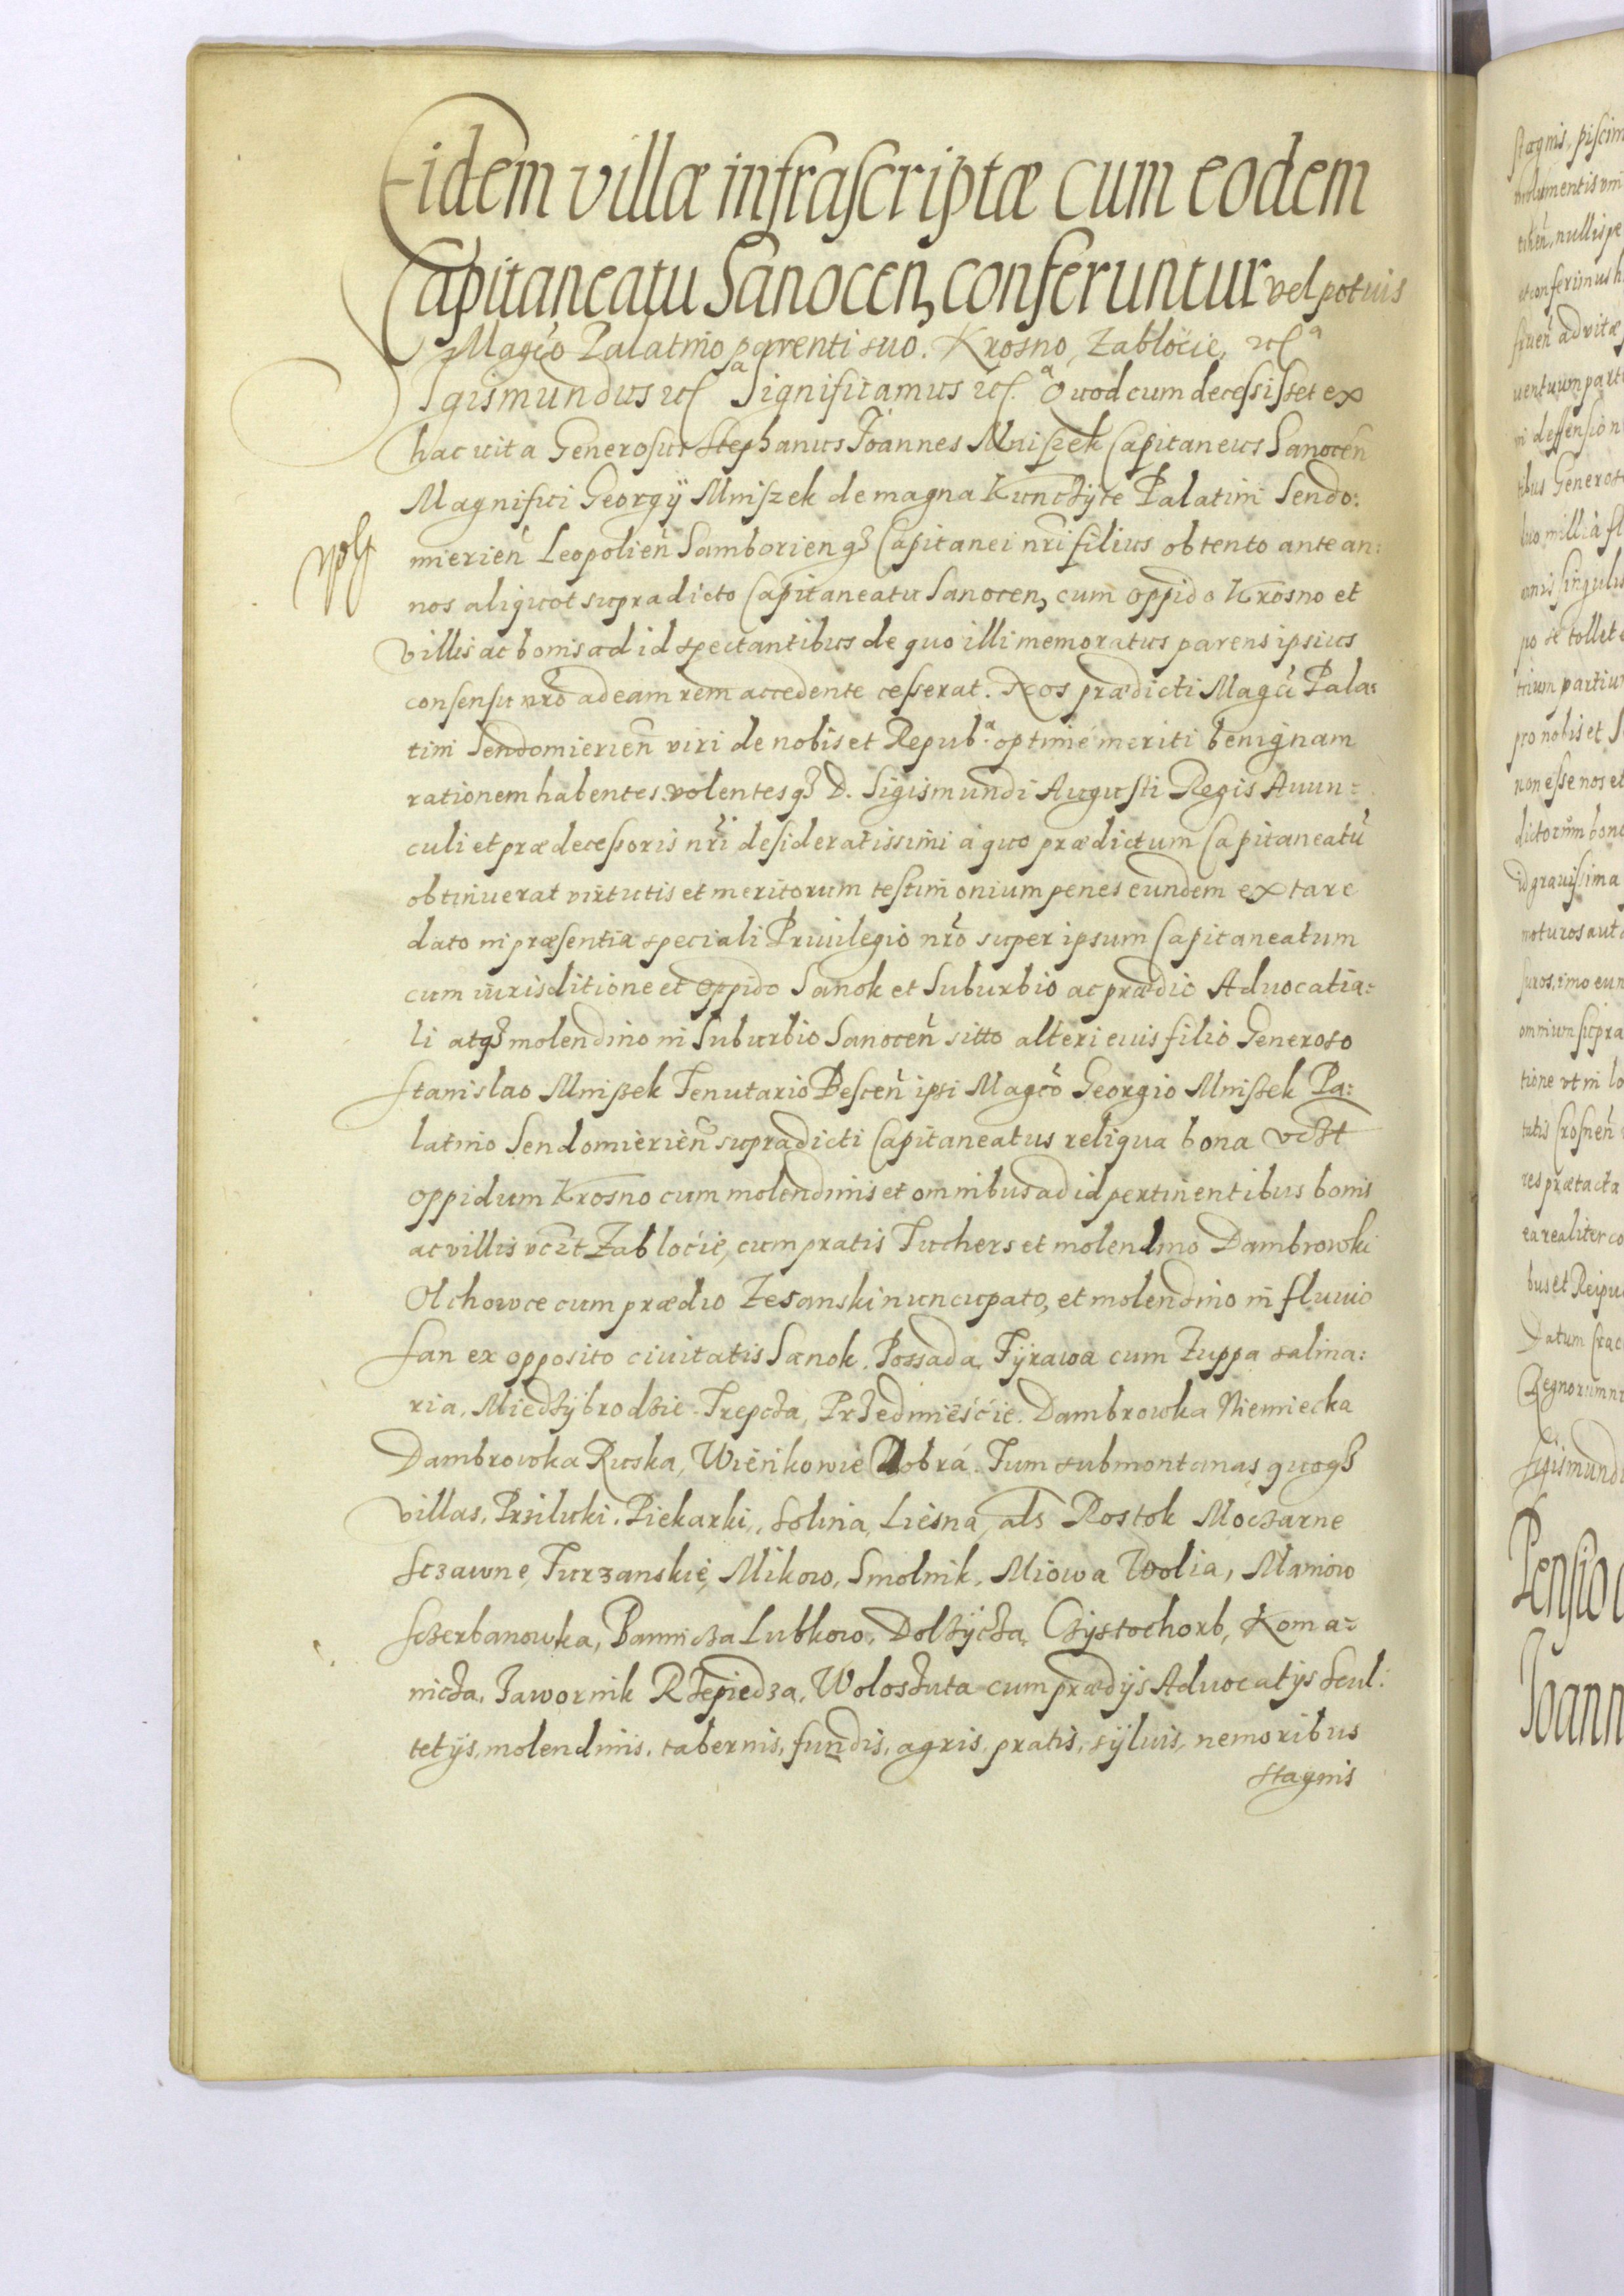 Eidem villæ infrascriptæ cum eodem
Capitaneatu Sanocen, conferuntur vel potuis
Magco Palatino parenti suo. Krosno, Zablocie, etc a
Sigismundus etc a Significamus etc. a Quod cum decessisset ex
hac uita Generosus Stephanus Joannes Mniszek Capitaneus Sanocen
Magnifici Georgÿ Mniszek de magna Kunczÿce Palatini Sendo:
mierien Leopolien Samborien q3 Capitanei nri filius obtento ante an:
nos aliquot supradicto Capitaneatu Sanocen, cum oppido Krosno et
villis ac bonis ad id spectantibus de quo illi memoratus parens ipsius
consensu nro ad eam rem accedente cesserat. Nos prædicti Magci Pala:
tini Sendomierien viri de nobis et Repub a. optime meriti benignam
rationem habentes volentesq3 D. Sigismundi Augusti Regis Auun:
culi et prædecessoris nri desideratissimi a quo prædictum Capitaneatu
obtinuerat virtutis et meritorum testimonium penes eundem extare
dato in præsentia speciali Priuilegio nro super ipsum Capitaneatum
cum iurisditione et oppido Sanok et Suburbio ac prædio Aduocatia:
li atq3 molendino in Suburbio Sanocen sitto alteri eius filio Generoso
Stanislao Mniszek Tenutario Pescen ipsi Magco Georgio Mniszek Pa:
latino Sendomierien supradicti Capitaneatus reliqua bona vczt
oppidum Krosno cum molendinis et omnibus ad id pertinentibus bonis
ac villis vczt Zablocie, cum pratis Tuchers et molendino Dambrowki
Olchowce cum prædio Zesanski nuncupato, et molendino in fluuio
San ex opposito ciuitatis Sanok. Possada, Tÿrawa cum Zuppa salina:
ria, Miedzÿbrodzie. Trepcza, Przedmieście. Dambrowka Niemiecka
Dambrowka Ruska, Wieńkowie Dobrá. Tum submontanas quoq3
villas, Przilucki. Piekarki, Solina, Liesna, als Rostok Moczarne
Sczawne, Turzanskie, Mikow, Smolnik, Miowa Wolia, Maniow
Sczerbanowka, Bannicza Lubkow, Dolzÿcza, Czÿstochorb, Koma:
nicza, Jawornik Rzepiedza, Woloszuta cum prædÿs Aduocatÿs Scul:
tetÿs, molendinis, tabernis, fundis, agris, pratis, sÿluis, nemoribus
stagnis